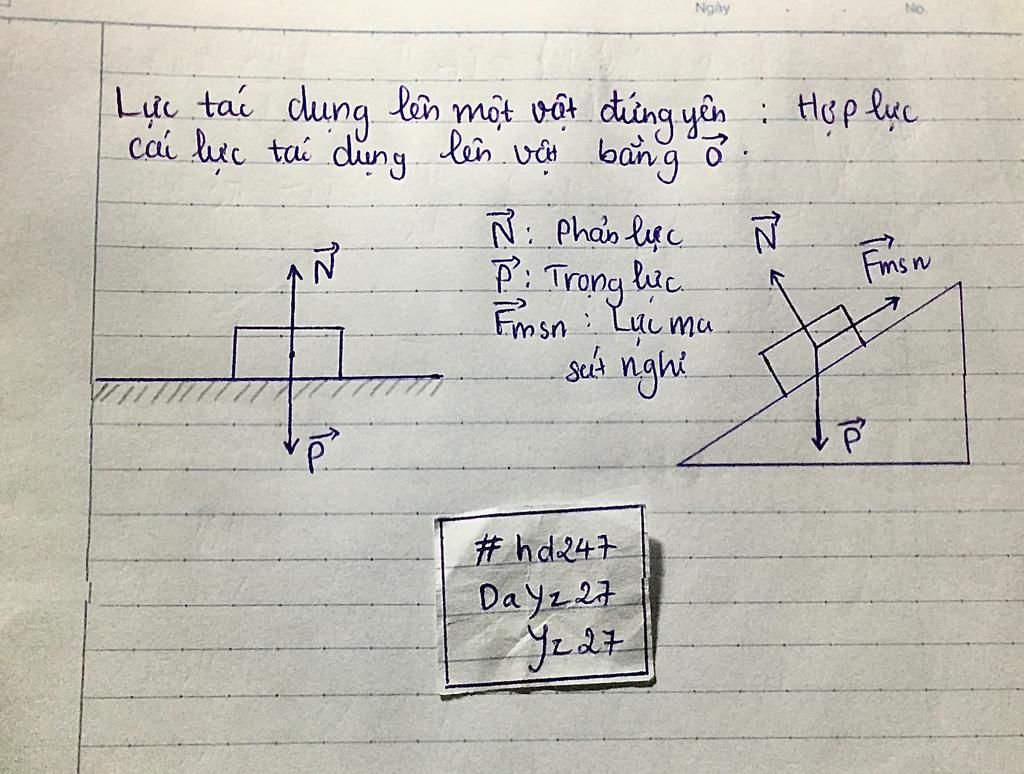 Ngày . . No.
Lực tác dụng lên một vật đứng yên : Hợp lực
các lực tác dụng lên vật bằng O⃗ .
N⃗ : Phản lực
P⃗ : Trọng lực
F⃗msn : Lực ma
sát nghỉ
N⃗
P⃗
N⃗
F⃗msn
P⃗
# hd247
DaYz27
Yz27